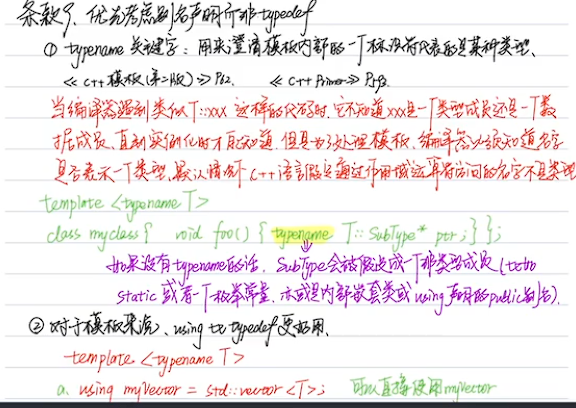 条款9、优先考虑别名声明而非typedef
① typename 关键字：用来澄清模板内部的一个标识符代表的是某种类型、
《C++模板(第二版)》P62.　《C++ Primer》P593.
当编译器遇到类似T::xxx 这样的代码时，它不知道xxx是一个类型成员还是一个数
据成员，直到实例化时才能知道，但是为了处理模板，编译器必须知道名字
是否表示一个类型，默认情况下 C++语言假定通过作用域运算符访问的名字不是类型
template <typename T>
class myclass{ void foo() { typename T::SubType* ptr; } };
如果没有typename的话，SubType会被假定成一个非类型成员(比如
static 或者一个枚举常量，亦或是内部嵌套类或using声明的public别名).
② 对于模板来说，using 比 typedef更好用、
template <typename T>
a. using myVector = std::vector <T>; 可以直接使用myVector